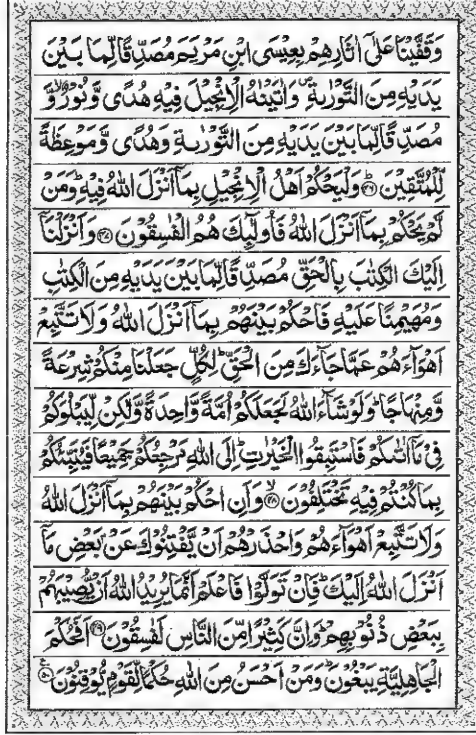 وَقَفَّيْنَا عَلٰٓى اٰثَارِهِمْ بِعِيْسَى ابْنِ مَرْيَمَ مُصَدِّقًا لِّمَا بَيْنَ
يَدَيْهِ مِنَ التَّوْرٰىةِ ۪ وَاٰتَيْنٰهُ الْاِنْجِيْلَ فِيْهِ هُدًى وَّنُوْرٌ ۙ وَّ
مُصَدِّقًا لِّمَا بَيْنَ يَدَيْهِ مِنَ التَّوْرٰىةِ وَهُدًى وَّمَوْعِظَةً
لِّلْمُتَّقِيْنَ ؕ﴿۴۶﴾ وَلْيَحْكُمْ اَهْلُ الْاِنْجِيْلِ بِمَاۤ اَنْزَلَ اللّٰهُ فِيْهِ ؕ وَمَنْ
لَّمْ يَحْكُمْ بِمَاۤ اَنْزَلَ اللّٰهُ فَاُولٰٓئِكَ هُمُ الْفٰسِقُوْنَ ﴿۴۷﴾ وَاَنْزَلْنَاۤ
اِلَيْكَ الْكِتٰبَ بِالْحَقِّ مُصَدِّقًا لِّمَا بَيْنَ يَدَيْهِ مِنَ الْكِتٰبِ
وَمُهَيْمِنًا عَلَيْهِ فَاحْكُمْ بَيْنَهُمْ بِمَاۤ اَنْزَلَ اللّٰهُ وَلَا تَتَّبِعْ
اَهْوَآءَهُمْ عَمَّا جَآءَكَ مِنَ الْحَقِّ ؕ لِكُلٍّ جَعَلْنَا مِنْكُمْ شِرْعَةً
وَّمِنْهَاجًا ؕ وَلَوْ شَآءَ اللّٰهُ لَجَعَلَكُمْ اُمَّةً وَّاحِدَةً وَّلٰكِنْ لِّيَبْلُوَكُمْ
فِيْ مَاۤ اٰتٰىكُمْ فَاسْتَبِقُوا الْخَيْرٰتِ ؕ اِلَى اللّٰهِ مَرْجِعُكُمْ جَمِيْعًا فَيُنَبِّئُكُمْ
بِمَا كُنْتُمْ فِيْهِ تَخْتَلِفُوْنَ ۙ﴿۴۸﴾ وَاَنِ احْكُمْ بَيْنَهُمْ بِمَاۤ اَنْزَلَ اللّٰهُ
وَلَا تَتَّبِعْ اَهْوَآءَهُمْ وَاحْذَرْهُمْ اَنْ يَّفْتِنُوْكَ عَنْۢ بَعْضِ مَاۤ
اَنْزَلَ اللّٰهُ اِلَيْكَ ؕ فَاِنْ تَوَلَّوْا فَاعْلَمْ اَنَّمَا يُرِيْدُ اللّٰهُ اَنْ يُّصِيْبَهُمْ
بِبَعْضِ ذُنُوْبِهِمْ ؕ وَاِنَّ كَثِيْرًا مِّنَ النَّاسِ لَفٰسِقُوْنَ ﴿۴۹﴾ اَفَحُكْمَ
الْجَاهِلِيَّةِ يَبْغُوْنَ ؕ وَمَنْ اَحْسَنُ مِنَ اللّٰهِ حُكْمًا لِّقَوْمٍ يُّوْقِنُوْنَ ﴿۵۰﴾ ع